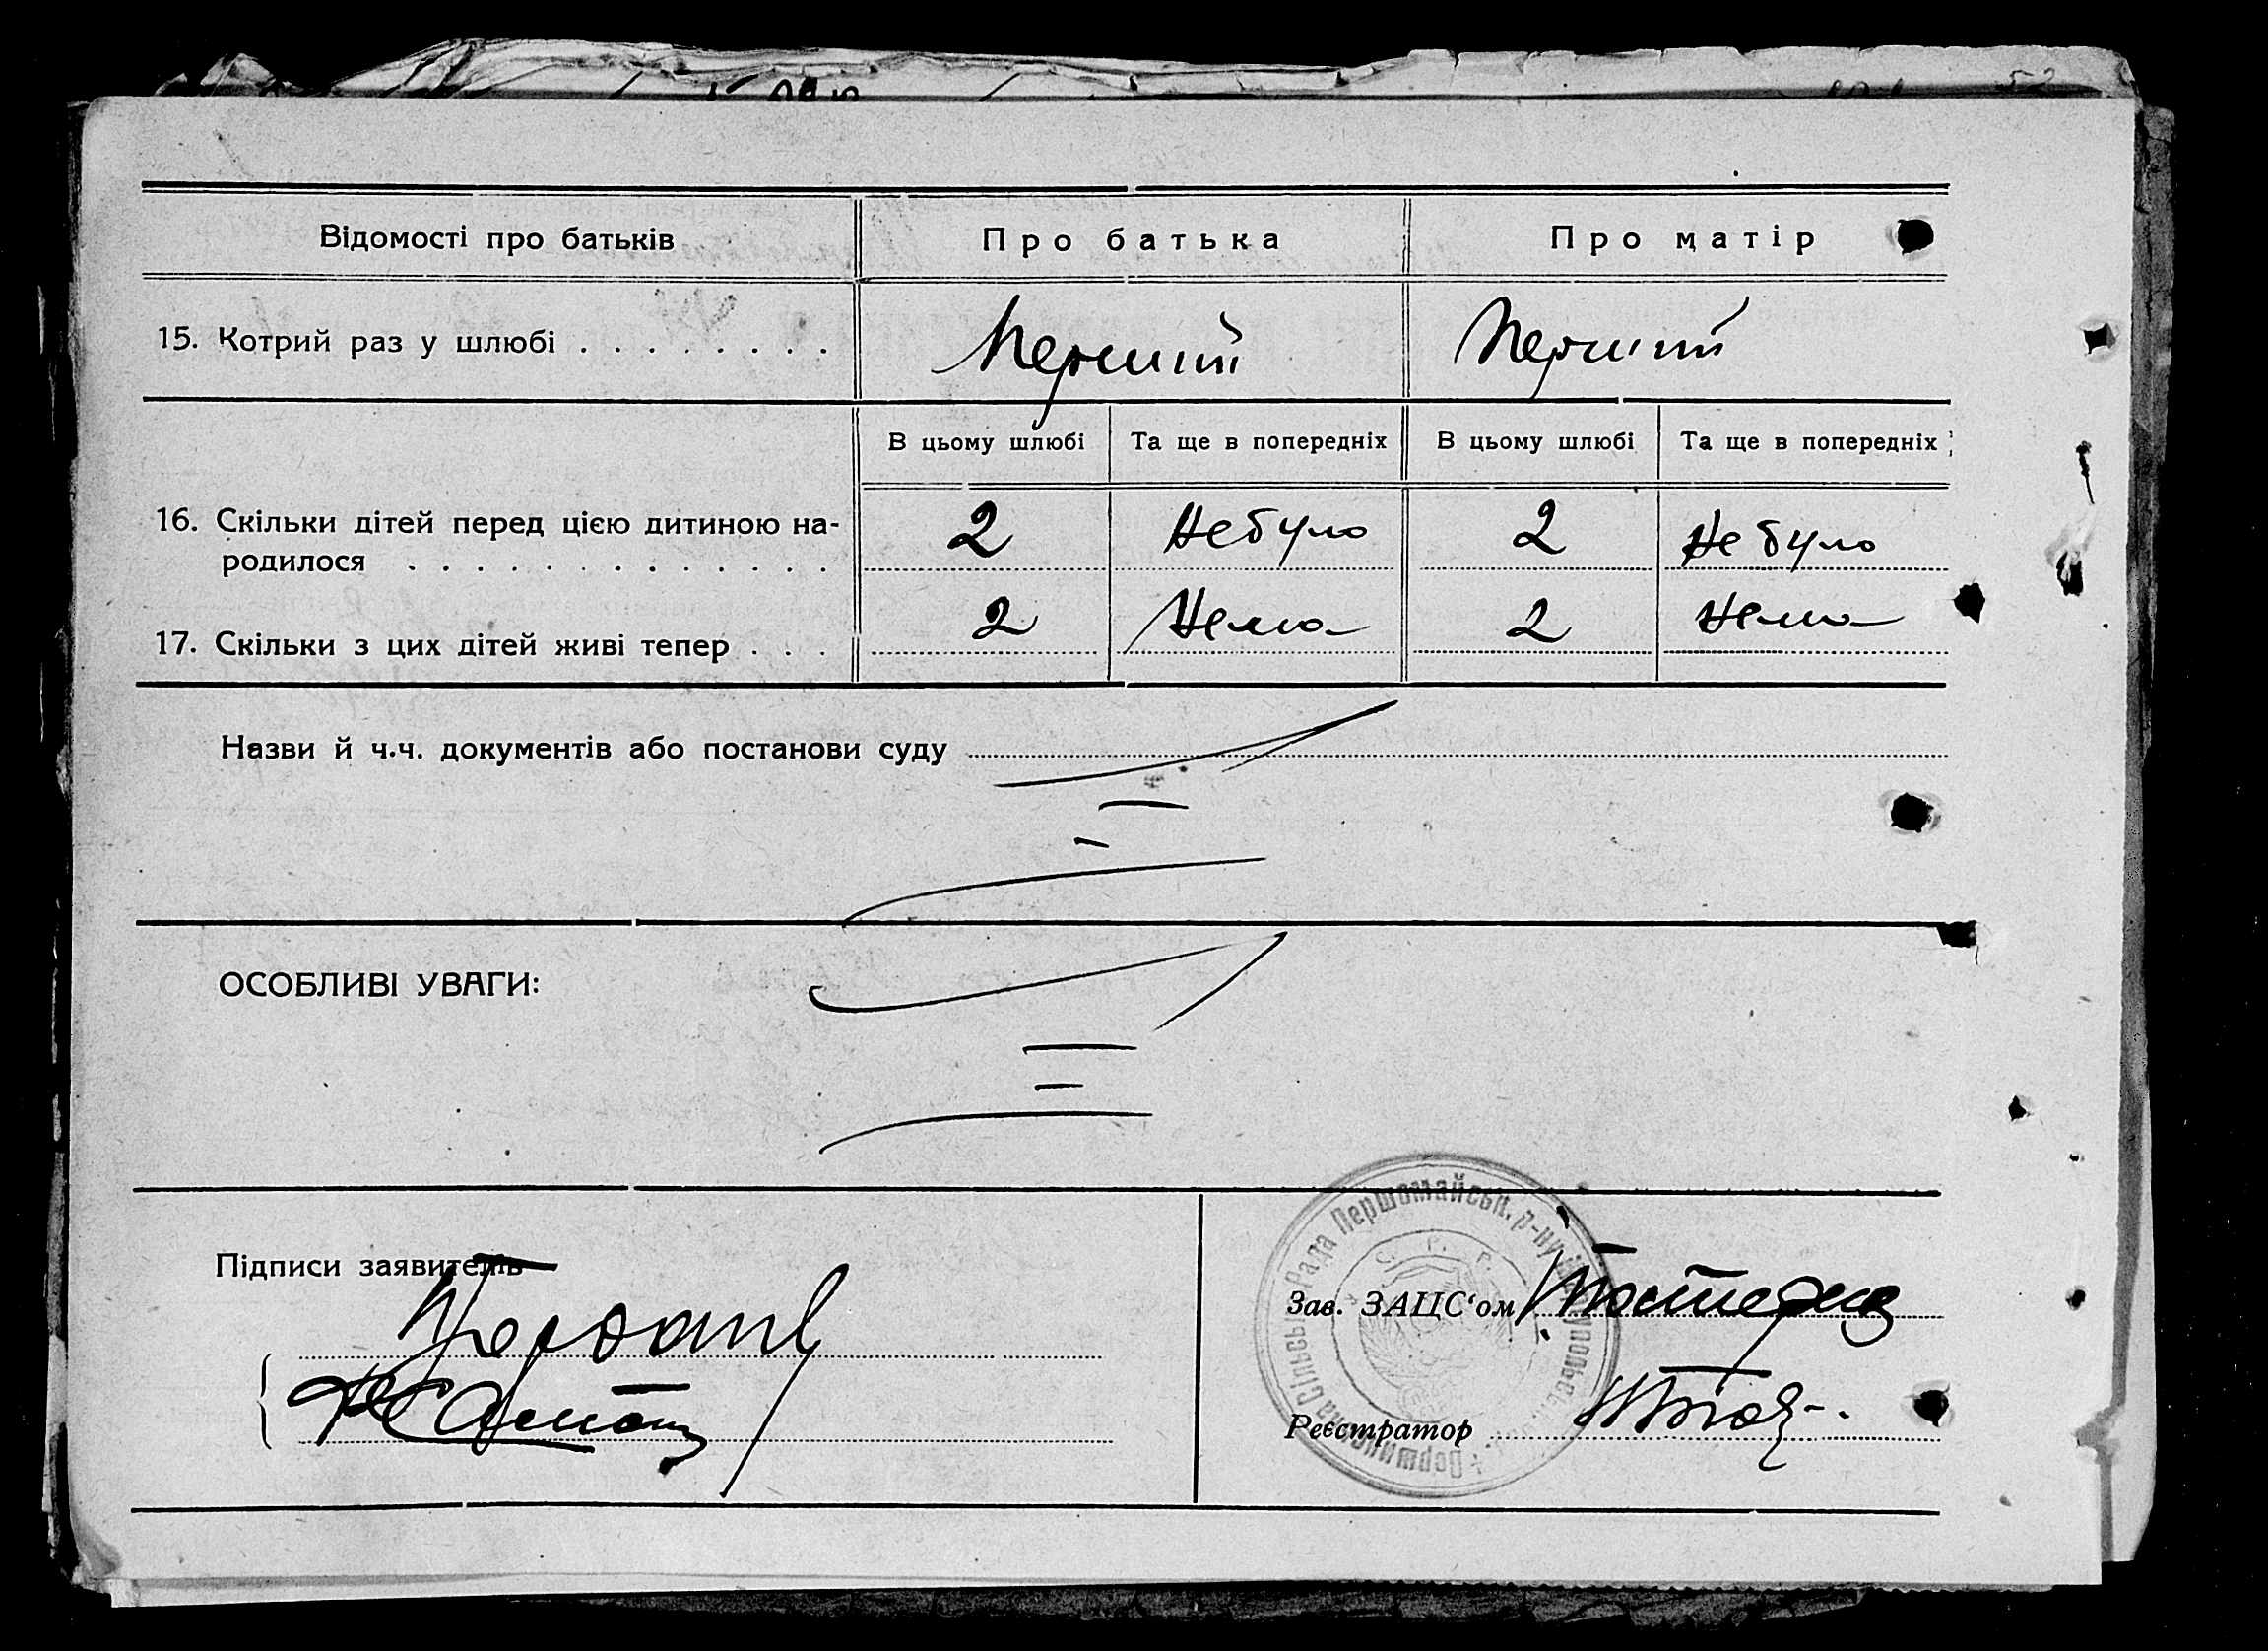 Відомості про батьків
Про батька
Про матір
15. Котрий раз у шлюбі . . . . . . . .
Перший
Перший
В цьому шлюбі
Та ще в попередніх
В цьому шлюбі
Та ще в попередніх
16. Скільки дітей перед цією дитиною на-
родилося . . . . . . . . . . . . .
2
Не було
2
Не було
17. Скільки з цих дітей живі тепер . . .
2
Нема
2
Нема
Назви й ч.ч. документів або постанови суду
ОСОБЛИВІ УВАГИ:
Підписи заявителів
Зав. ЗАЦС‘ом
Реєстратор
Сільська Рада Першомайськ. р-ну